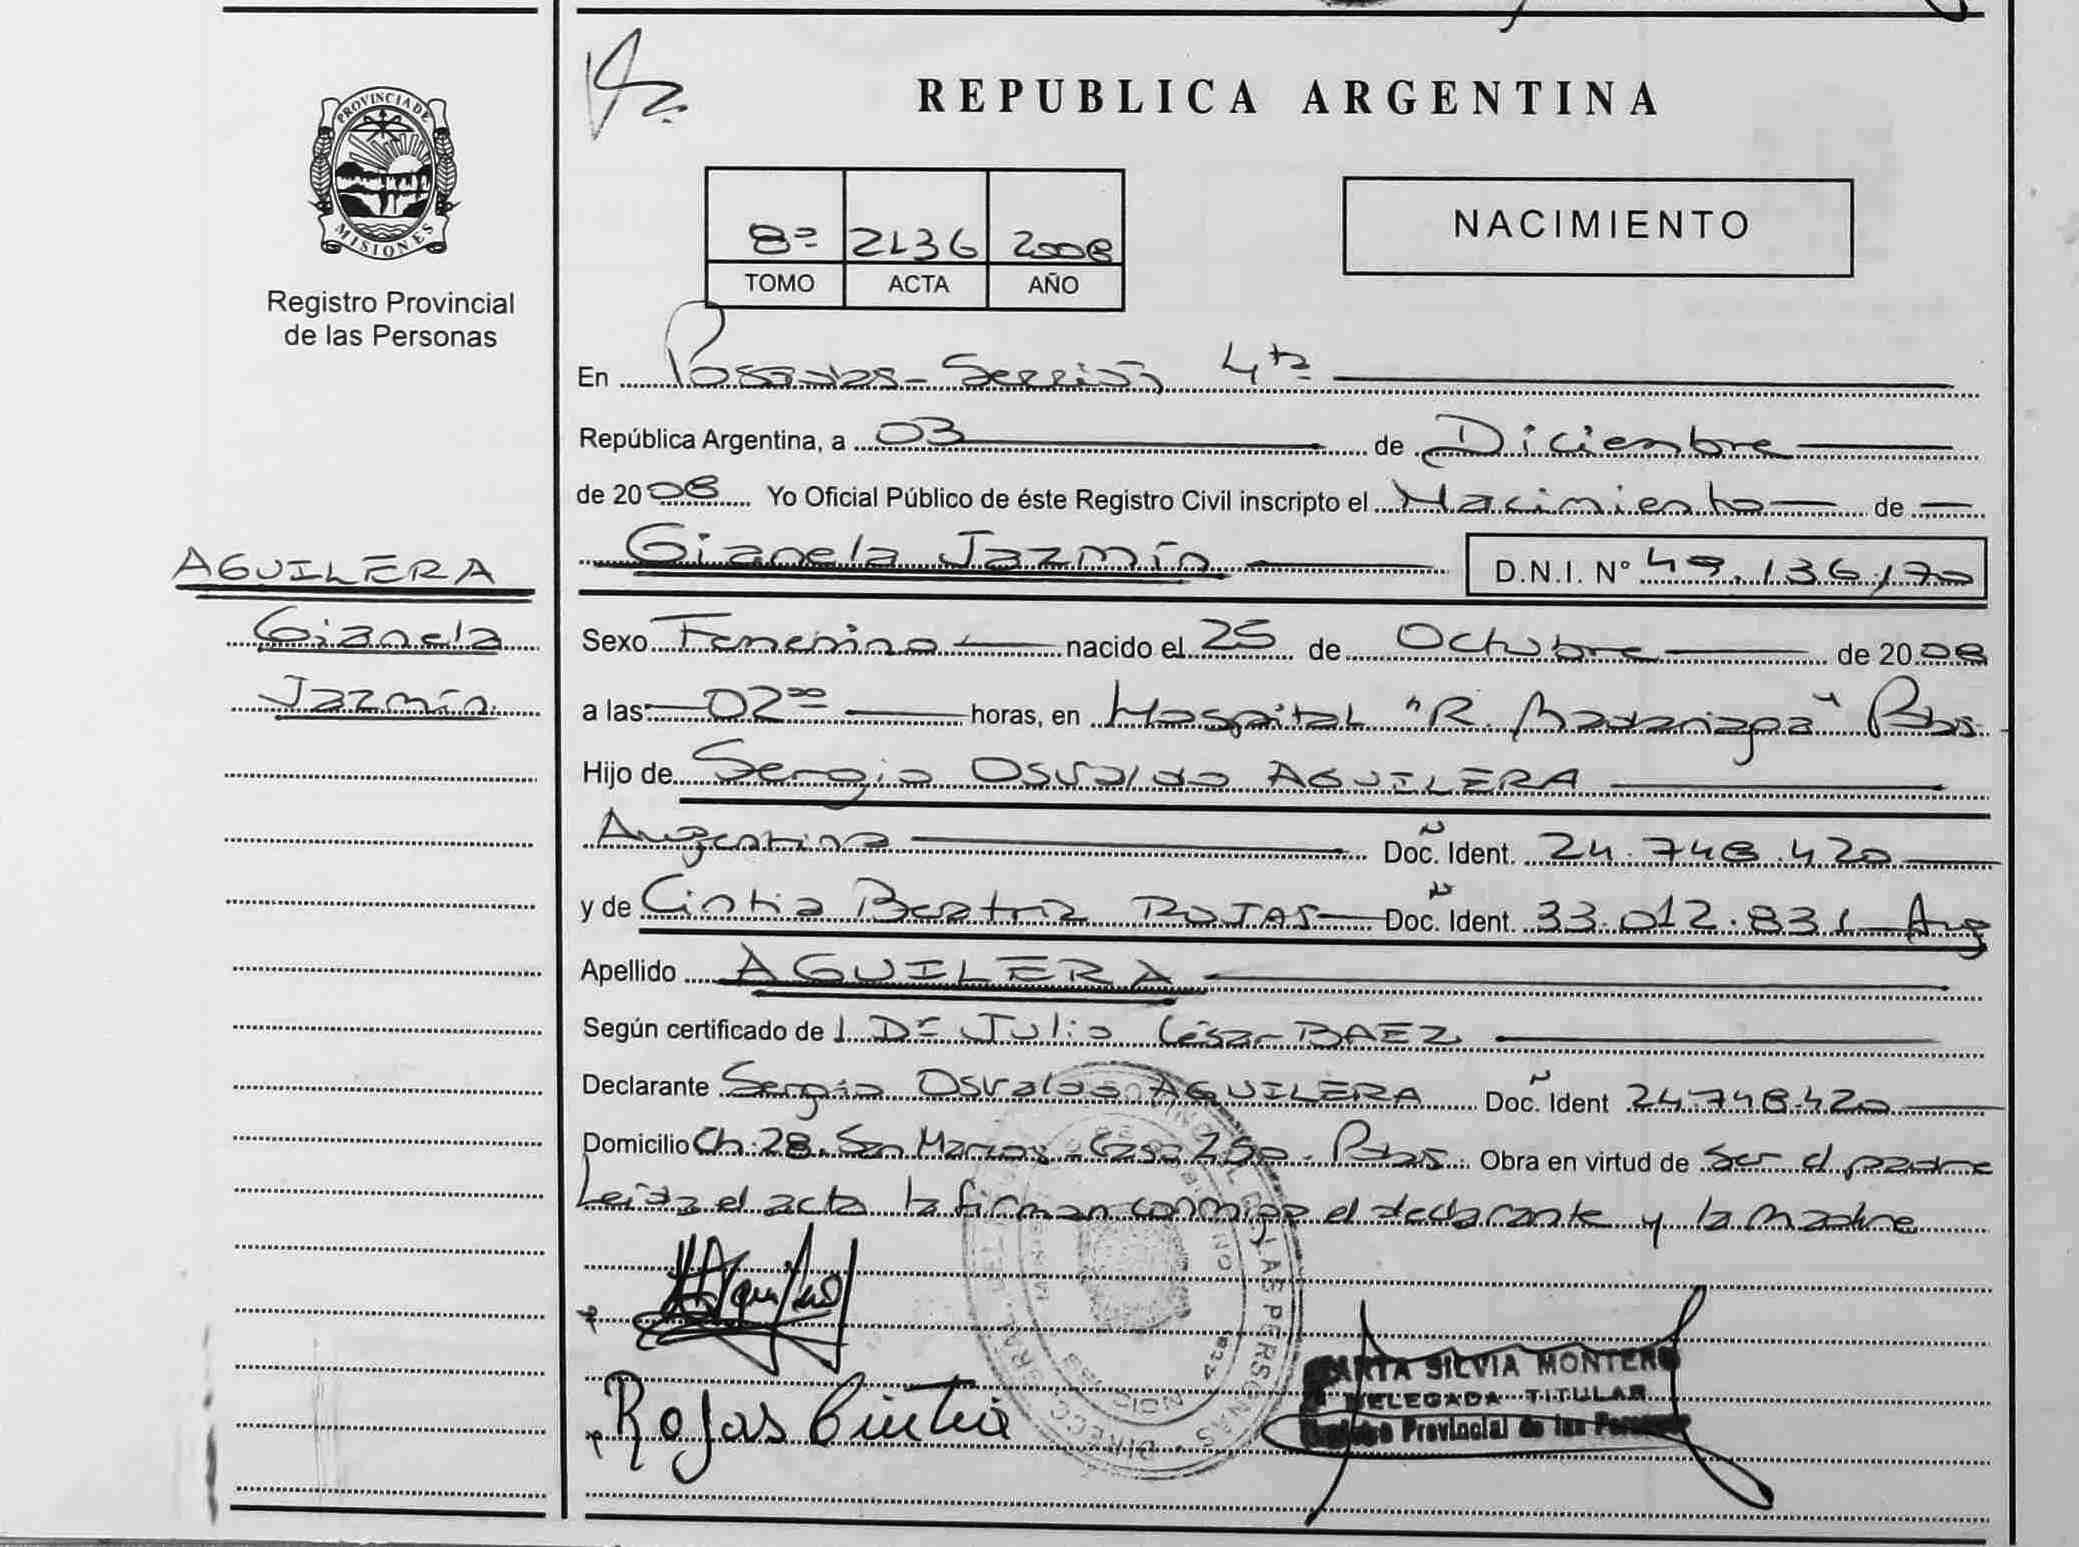 REPUBLICA ARGENTINA
PROVINCIA DE
MISIONES
Registro Provincial
de las Personas
8º 2136 2008
TOMO ACTA AÑO
NACIMIENTO
En Posadas - Sección 4ta
República Argentina, a 03 de Diciembre
de 2008 Yo Oficial Público de éste Registro Civil inscripto el Nacimiento de
Gianela Jazmín D.N.I. Nº 49.136,170
AGUILERA
Gianela
Jazmín
Sexo Femenino nacido el 25 de Octubre de 2008
a las 02ºº horas, en Hospital "R. Madariaga" Pdas.
Hijo de Sergio Osvaldo AGUILERA
Argentina Doc. Ident. 24.748.420
y de Cintia Beatriz ROJAS Doc. Ident. 33.012.831 Arg
Apellido AGUILERA
Según certificado de l Dr Julio César BAEZ
Declarante Sergio Osvaldo AGUILERA Doc. Ident 24.748.420
Domicilio Ch. 28. San Marcos - Casa 250. Pdas. Obra en virtud de Ser el padre
Leida el acta la firman conmigo el declarante y la madre
Rojas Cintia
SILVIA MONTERO
DELEGADA TITULAR
Provincial de las